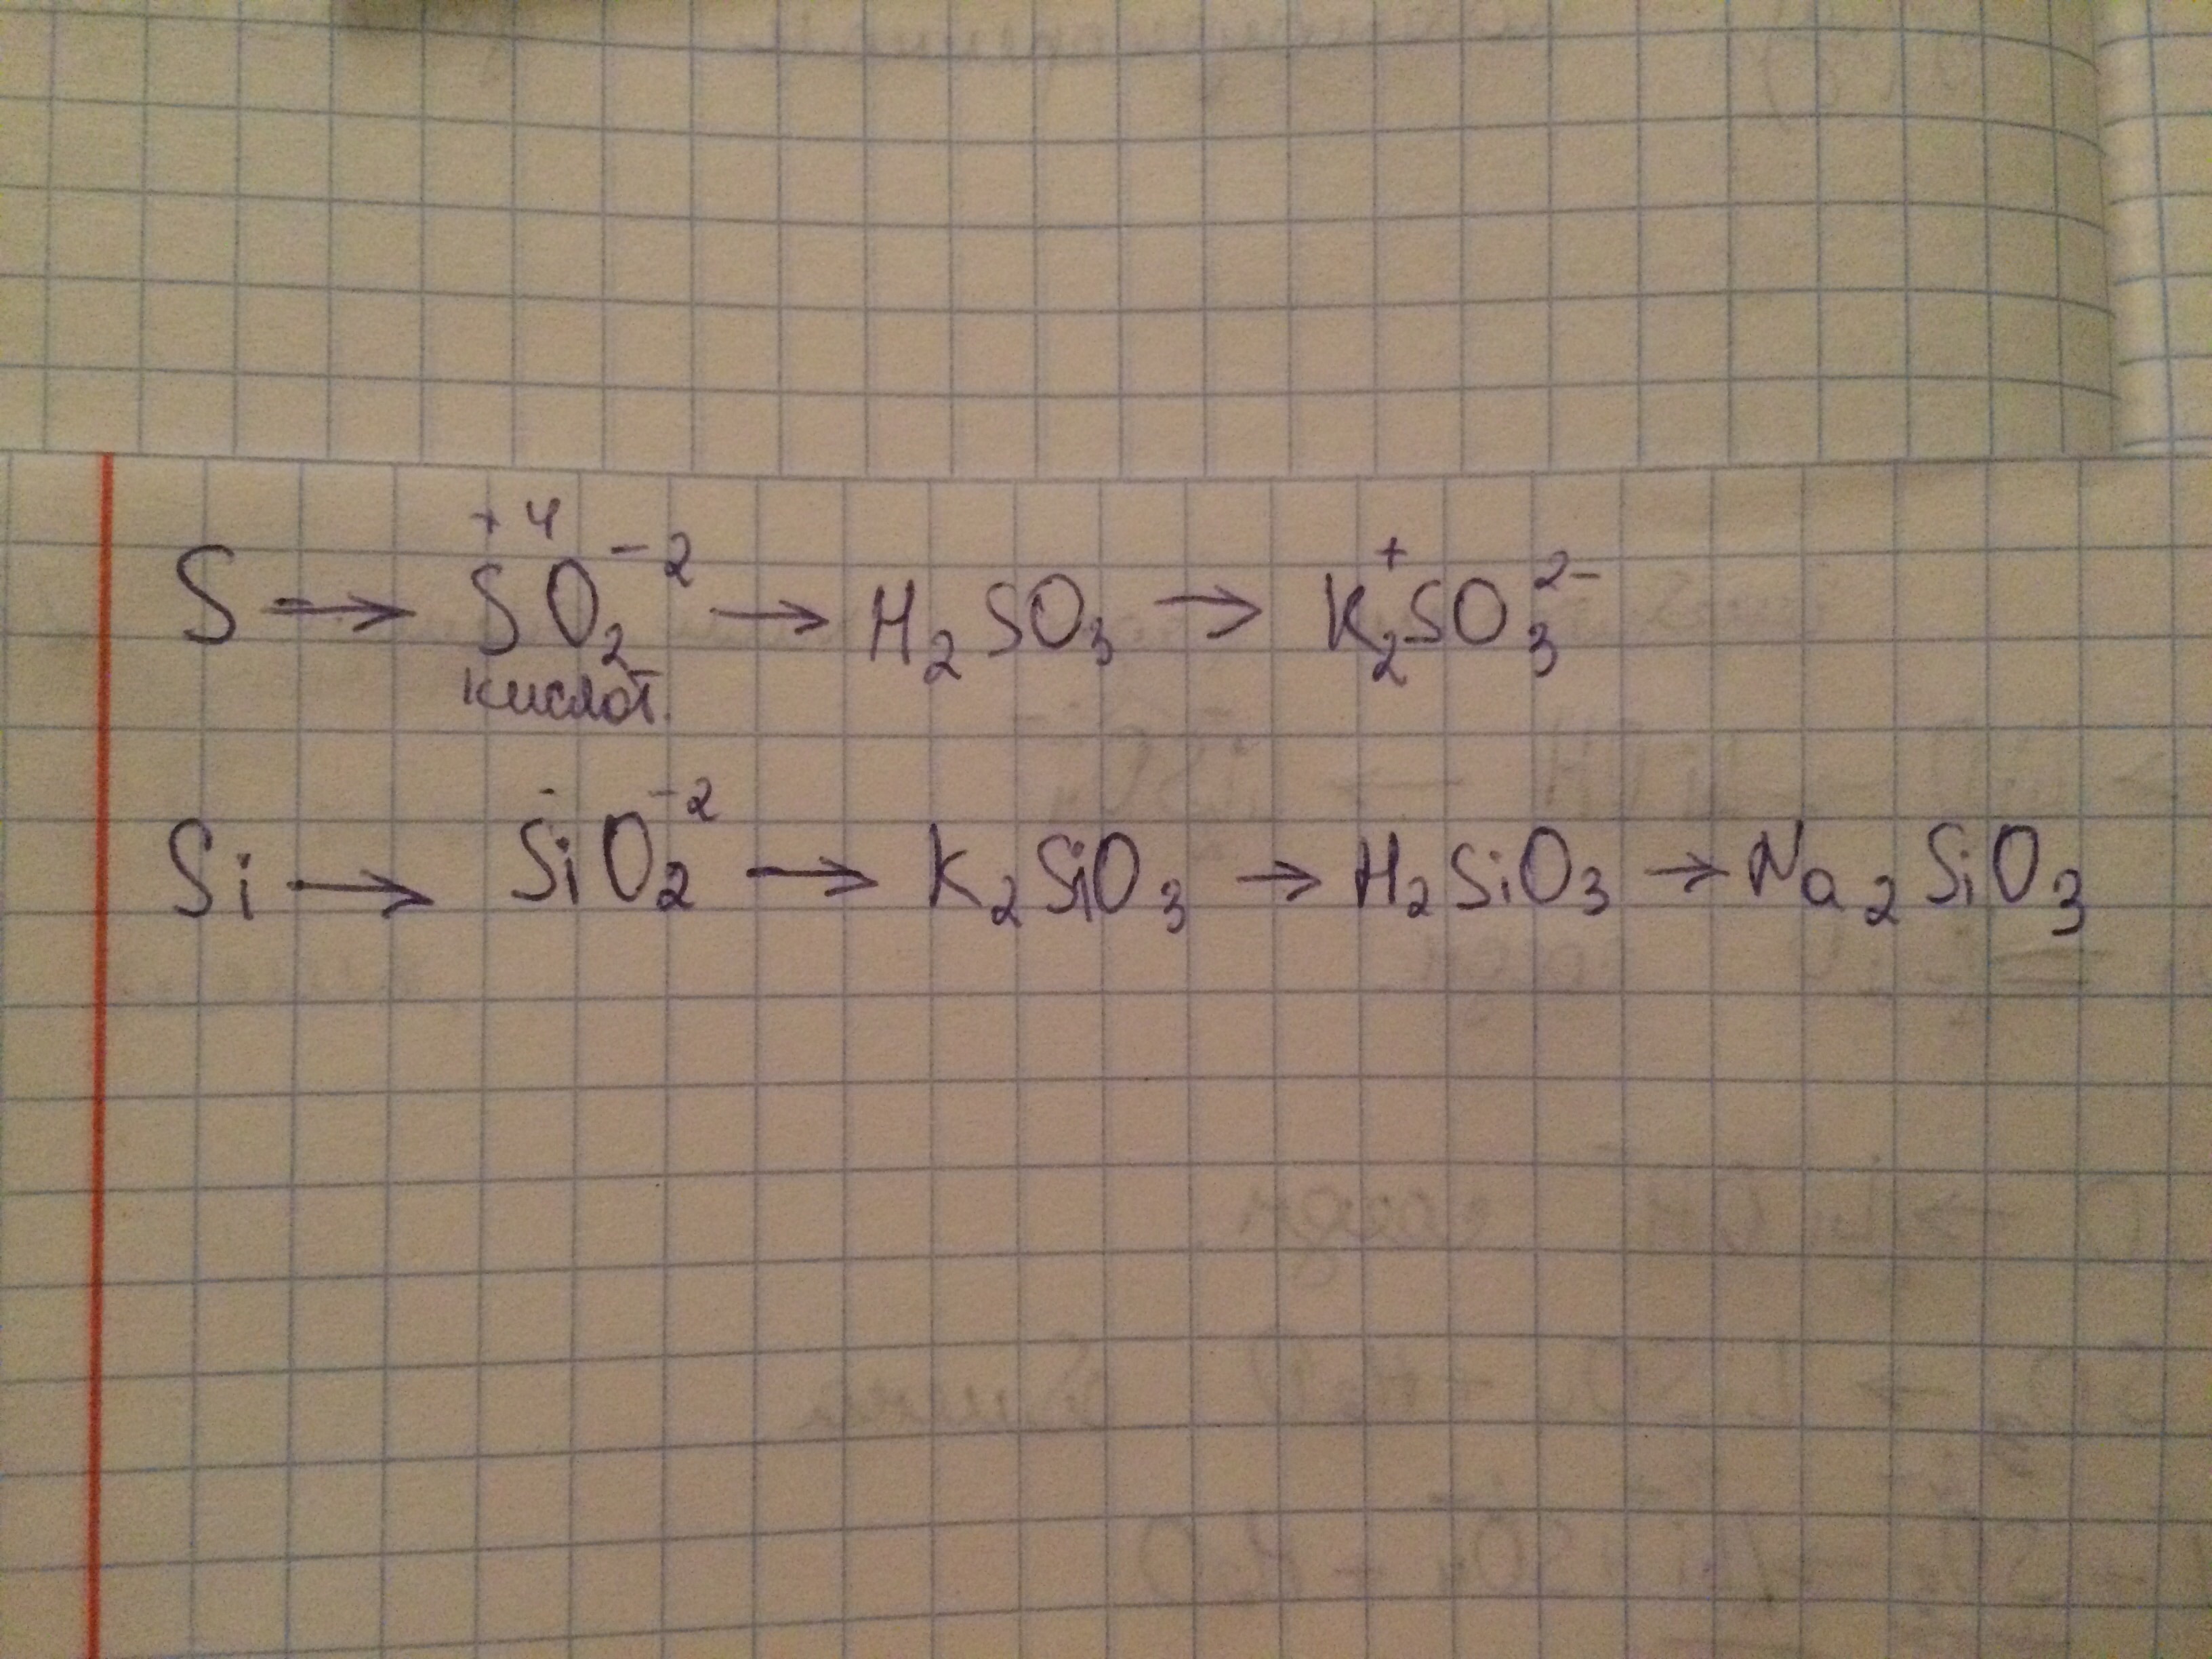 S → S⁺⁴O₂⁻² → H₂SO₃ → K₂⁺SO₃²⁻
кислот.
Si → SiO₂⁻² → K₂SiO₃ → H₂SiO₃ → Na₂SiO₃